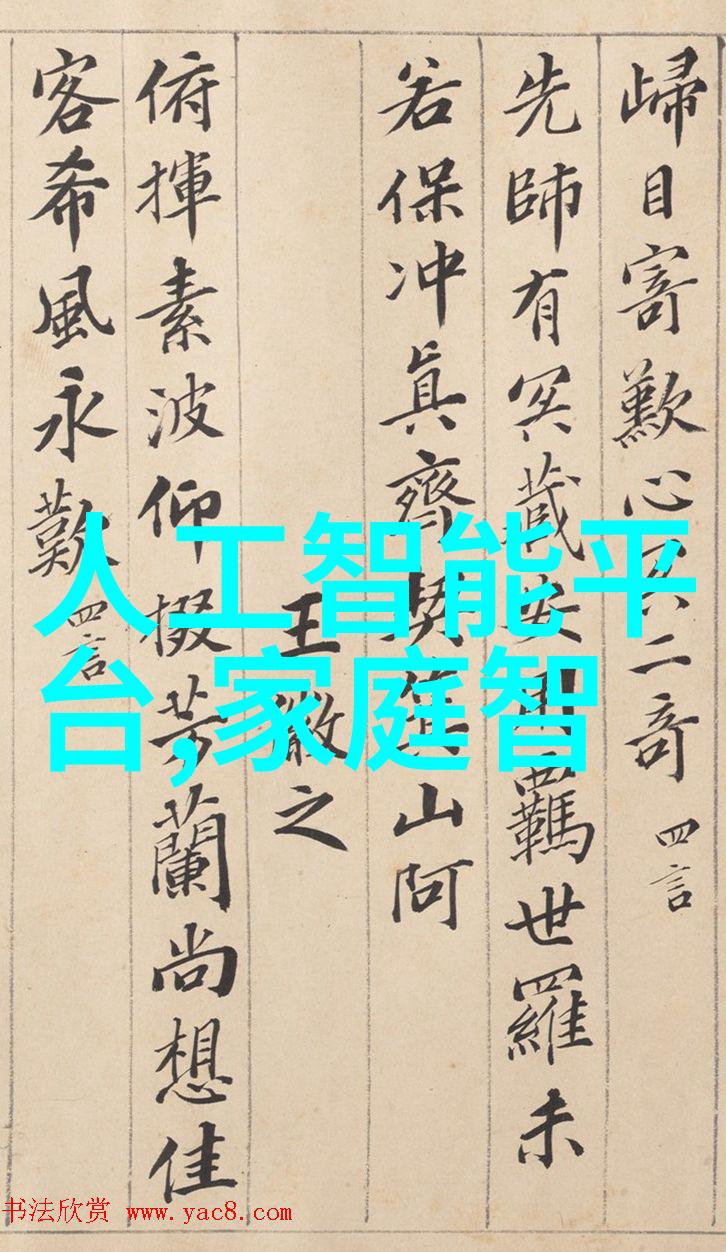 歸目寄歎心冥二奇 四言
先師有冥藏安用羈世羅未
若保冲眞齊契箕山阿
王徽之
俯揮素波仰掇芳蘭尚想佳
客希風永歎 四言
人工智能平
台,家庭智
书法欣赏 www.yac8.com